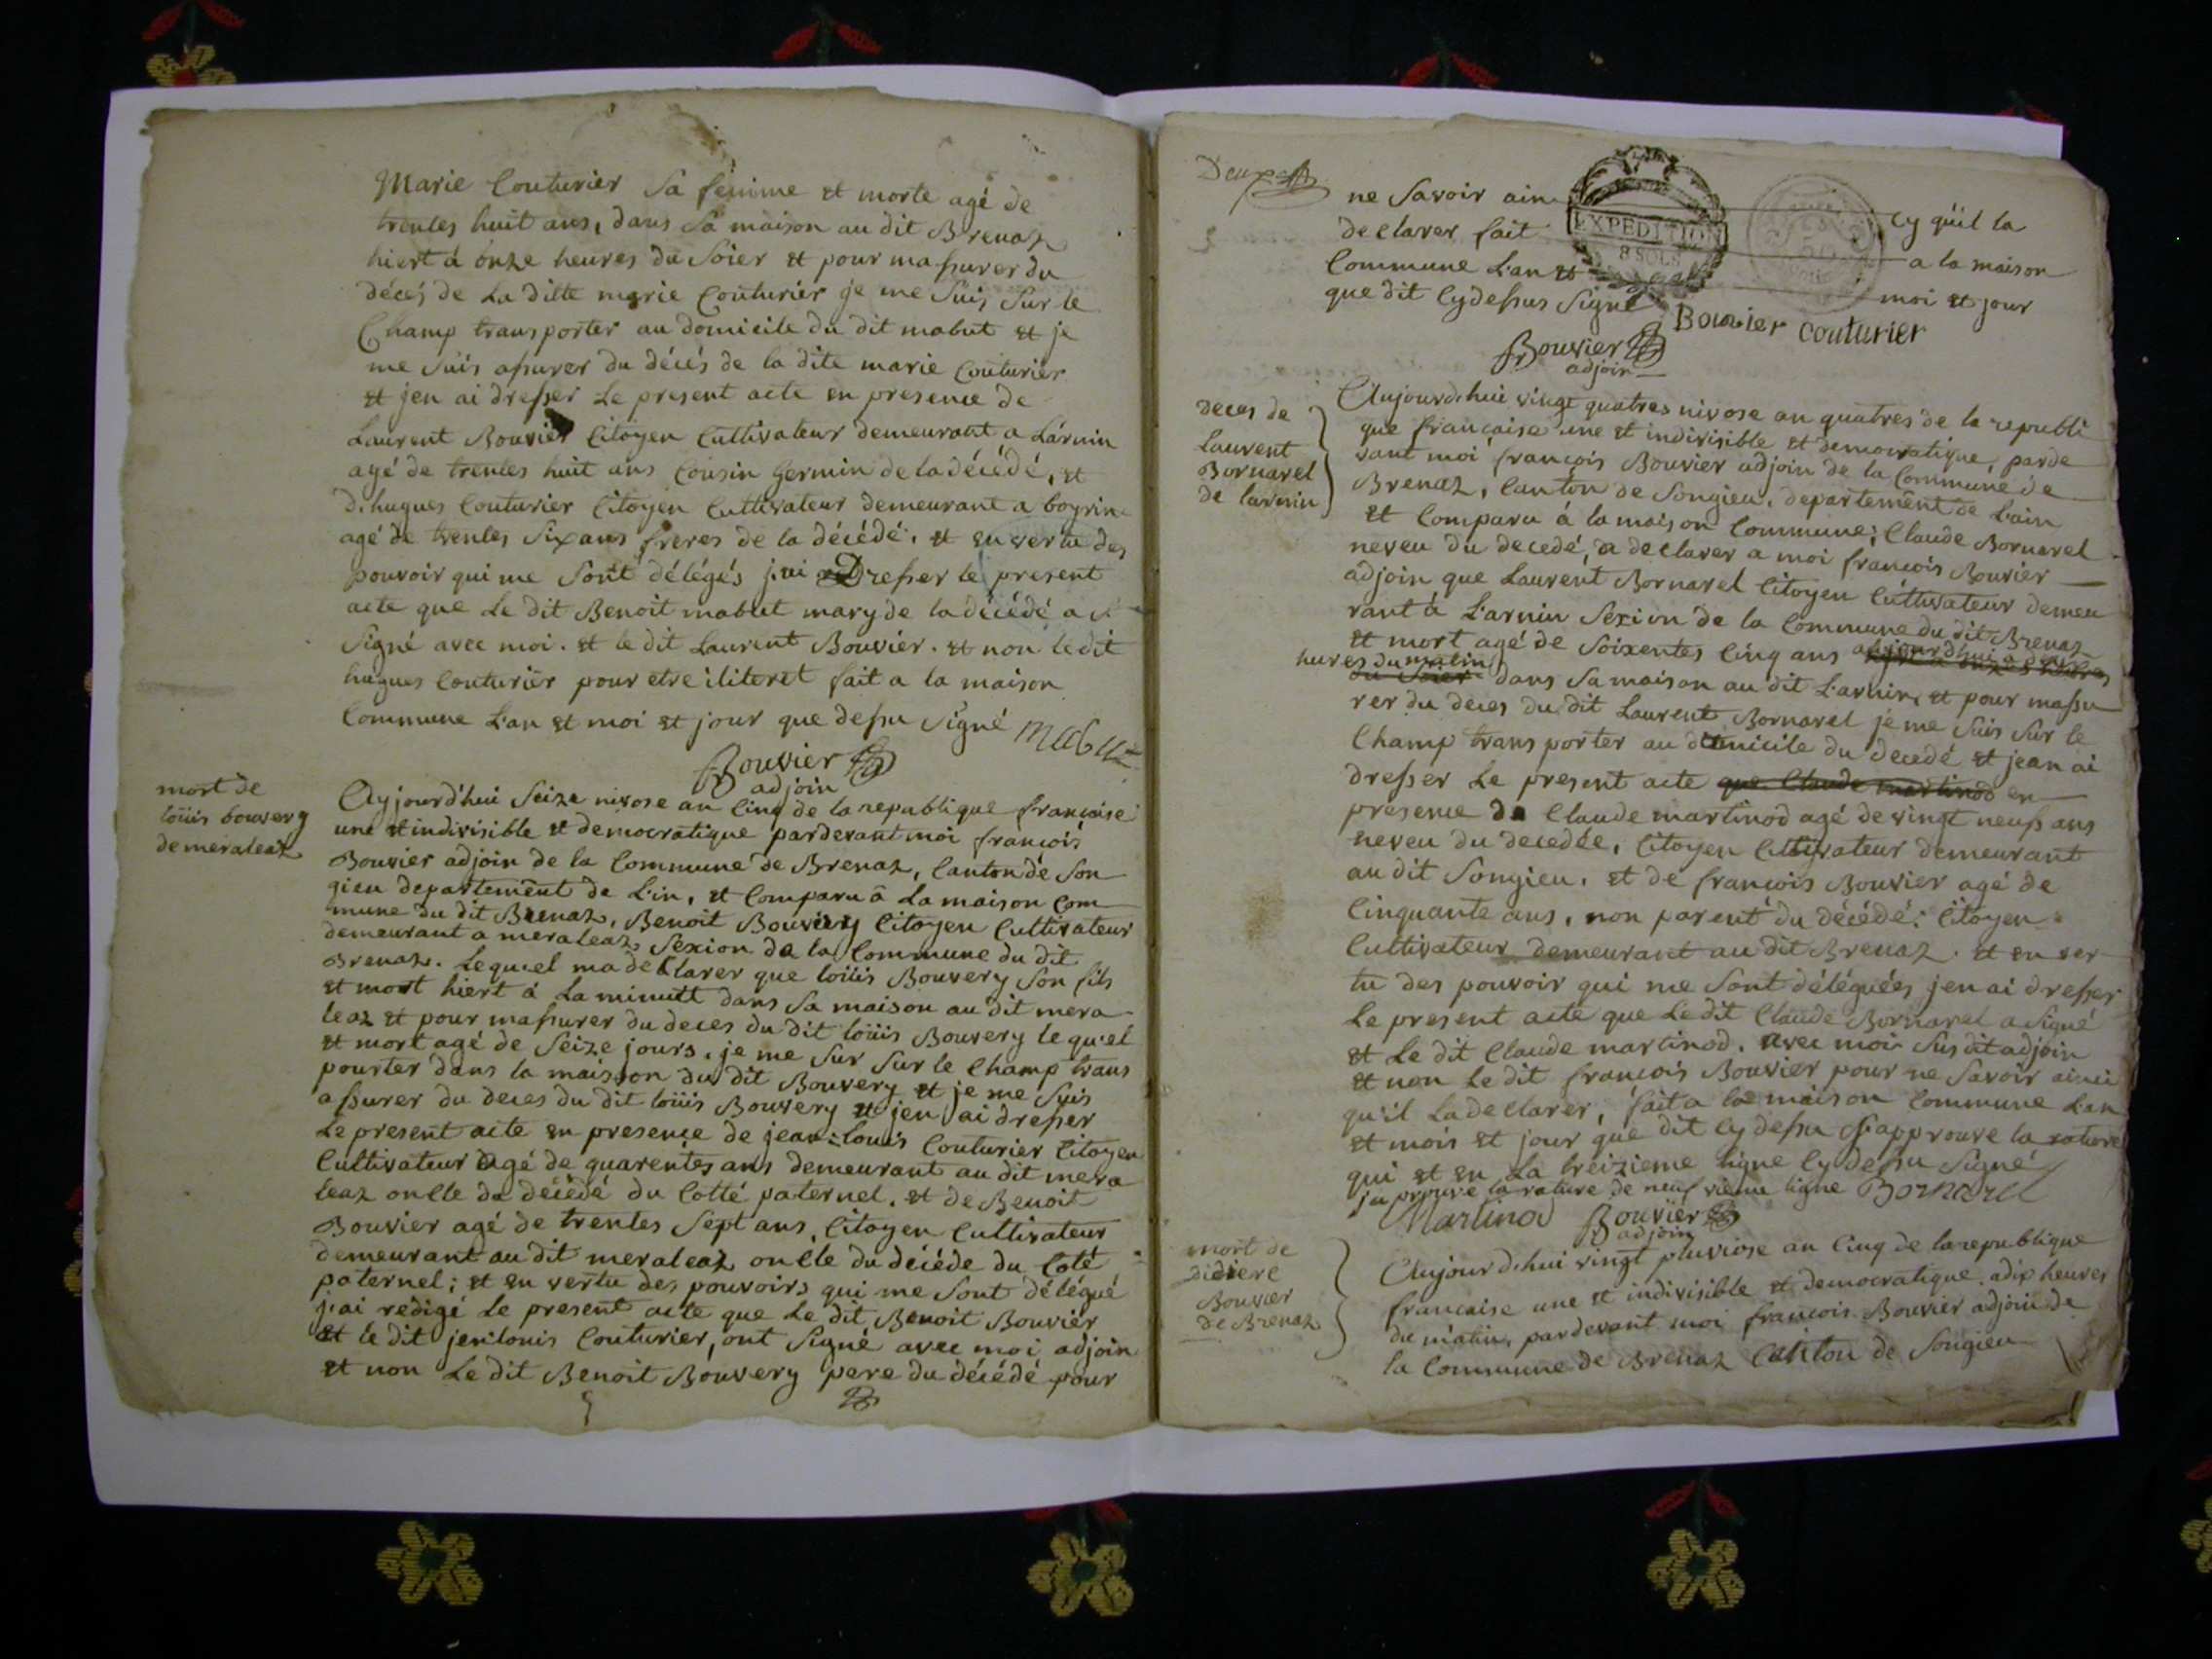 Marie Couturier Sa femme et morte agé de
trentes huit ans, dans Sa maison au dit Brenaz
hiert á onze heures du Soier et pour massurer du
décés de La ditte marie Couturier je me Suis Sur le
Champ transporter au domicile du dit mabut et je
me Suis assurer du décés de la dite marie Couturier
et jen ai dresser Le present acte en presence de
Laurent Bouvier Citoyen Cultivateur demeurant a Larnin
agé de trentes huit ans Cousin Germin de la décédé, et
d.hugues Couturier Citoyen Cultivateur demeurant a
agé de trentes Six ans freres de la décédé. et en vertu des
pouvoir qui me Sont délégés j.ai Dresser le present
acte que Le dit Benoit mabut mary de la décédé a
Signé avec moi. et le dit Laurent Bouvier. et non le dit
hugues Couturier pour etre iliteret fait a la maison
Commune L'an et moi et jour que dessu Signé mabut
Bouvier
adjoin
mort de
loüis bouvery
de meraleaz
Aujourd'hui Seize nivose an Cinq de la republique françoise
une et indivisible et democratique pardevant moi françois
Bouvier adjoin de la Commune de Brenaz, Canton de Son
gieu departement de L'in, et Comparu â La maison Com
mune du dit Brenaz, Benoit Bouvery Citoyen Cultivateur
demeurant a meraleaz Sexion de la Commune du dit
Brenaz. Lequel ma declarer que loüis Bouvery Son fils
et mort hiert á La minutt dans Sa maison au dit mera
leaz et pour massurer du deces du dit loüis Bouvery lequ'el
et mort agé de Seize jours. je me Sur Sur le Champ trans
pourter dans la maisson du dit Bouvery et je me Suis
assurer du deces du dit loüis Bouvery et jen ai dresser
Le present acte en presence de jean: louis Couturier Citoyen
Cultivateur agé de quarentes ans demeurant au dit mera
leaz oncle de décédé du Cotté paternel. et de Benoit
Bouvier agé de trentes Sept ans, Citoyen Cultivateur
demeurant au dit meraleaz oncle du décéde du Coté
paternel; et en vertu des pouvoirs qui me Sont délégué
j.ai redigé Le present acte que Le dit Benoit Bouvier
et le dit jen:louis Couturier, ont Signé avec moi adjoin
et non Le dit Benoit Bouvery pere du décédé pour
ne Savoir ain cy qu'il la
declarer fait a la maison
Commune L'an et moi et jour
que dit Cydessus Signé
EXPEDITION
8 SOLS
Bouvier Couturier
Bouvier
adjoin
deces de
Laurent
Bornarel
de larnin
Aujourd.hui vingt quatres nivose an quatres de la republi
que française une et indivisible et democratique, parde
vant moi françois Bouvier adjoin de la Commune de
Brenaz, Canton de Songieu, departement de L'ain
et Comparu á la maison Commune; Claude Bornarel
neveu du decedé, a declarer a moi françois Bouvier
adjoin que Laurent Bornarel Citoyen Cultivateur demeu
rant á L'arnin Sexion de la Commune du dit Brenaz
et mort agé de Soixentes Cinq ans aujourd'hui
hures du matin
du Soier dans Sa maison au dit L'arnin, et pour massu
rer du deces du dit Laurent Bornarel je me Suis Sur le
Champ transporter au domicile du decedé et jean ai
dresser Le present acte que Claude martinod en
presence de Claude martinod agé de vingt neuf ans
neveu du decedée, Citoyen Cultivateur demeurant
au dit Songieu. et de françois Bouvier agé de
Cinquante ans, non parent du décédé: Citoyen
Cultivateur demeurant au dit Brenaz. et en ver
tu des pouvoir qui me Sont déléguées jen ai dresser
Le present acte que Le dit Claude Bornarel a Signé
et Le dit Claude martinod. avec moi Sus dit adjoin
et non Le dit françois Bouvier pour ne Savoir ainci
qu'il La declarer, fait a la maison Commune L'an
et mois et jour que dit Cy dessu approuve la rature
qui et en La treizieme ligne Cy dessu Signé
prouve la rature de neuf vieme ligne Bornarel
Martinod Bouvier
adjoin
mort de
didiere
Bouvier
de Brenaz
Aujourd.hui vingt pluviose an Cinq de la republique
francaise une et indivisible et democratique. a dix heures
du matin, pardevant moi francois Bouvier adjoin de
la Commune de Brenaz Canton de Songieu